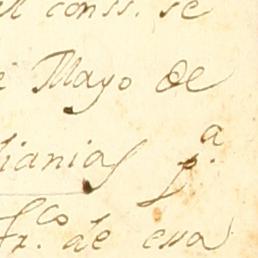 el conss. se
e Mayo de
lianias p.ª
Fr.co de essa